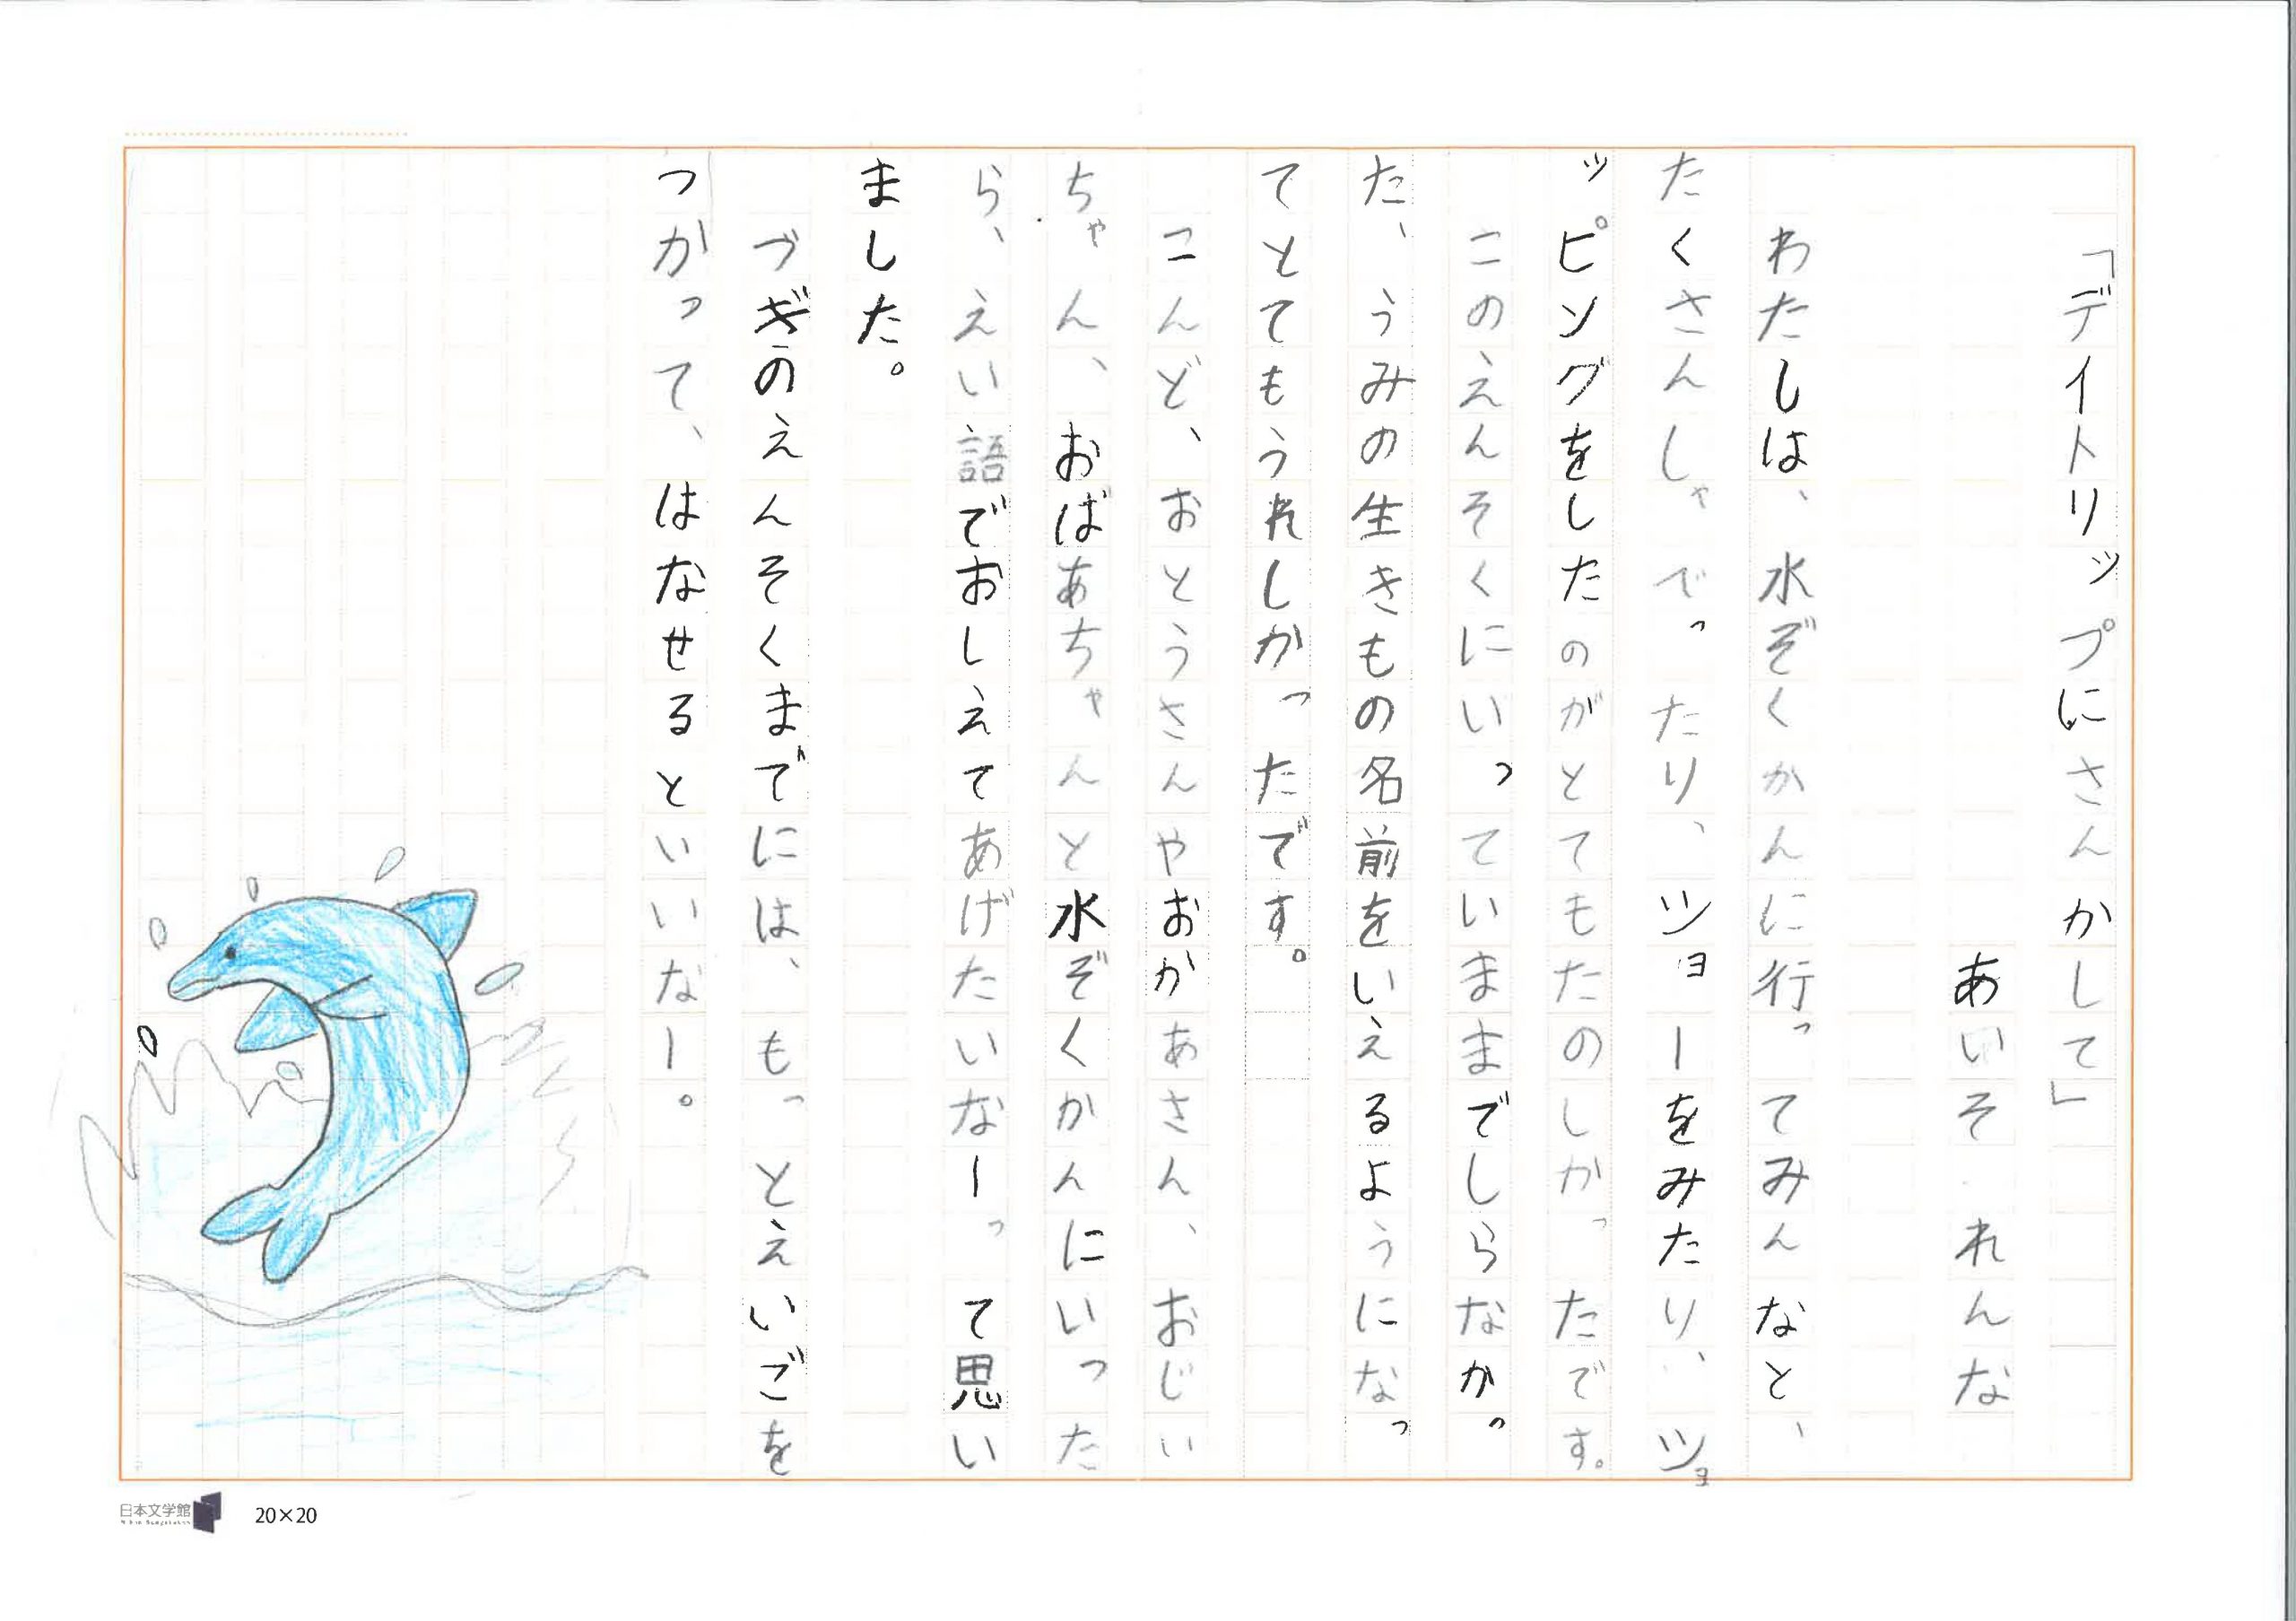 「デイトリップにさんかして」
あいそ れんな
わたしは、水ぞくかんに行ってみんなと、
たくさんしゃでったり、ツョーをみたり、ツョ
ッピソグをしたのがとてもたのしかったです。
このえんそくにいっていままでしらなかっ
た、うみの生きもの名前をいえるようになっ
てとてもうれしかったです。
こんど、おとうさんやおかあさん、おじい
ちゃん、おばあちゃんと水ぞくかんにいった
ら、えい語でおしえてあげたいなーって思い
ました。
づぎのえんそくまでには、もっとえいごを
つかって、はなせるといいなー。
日本文学館
20×20